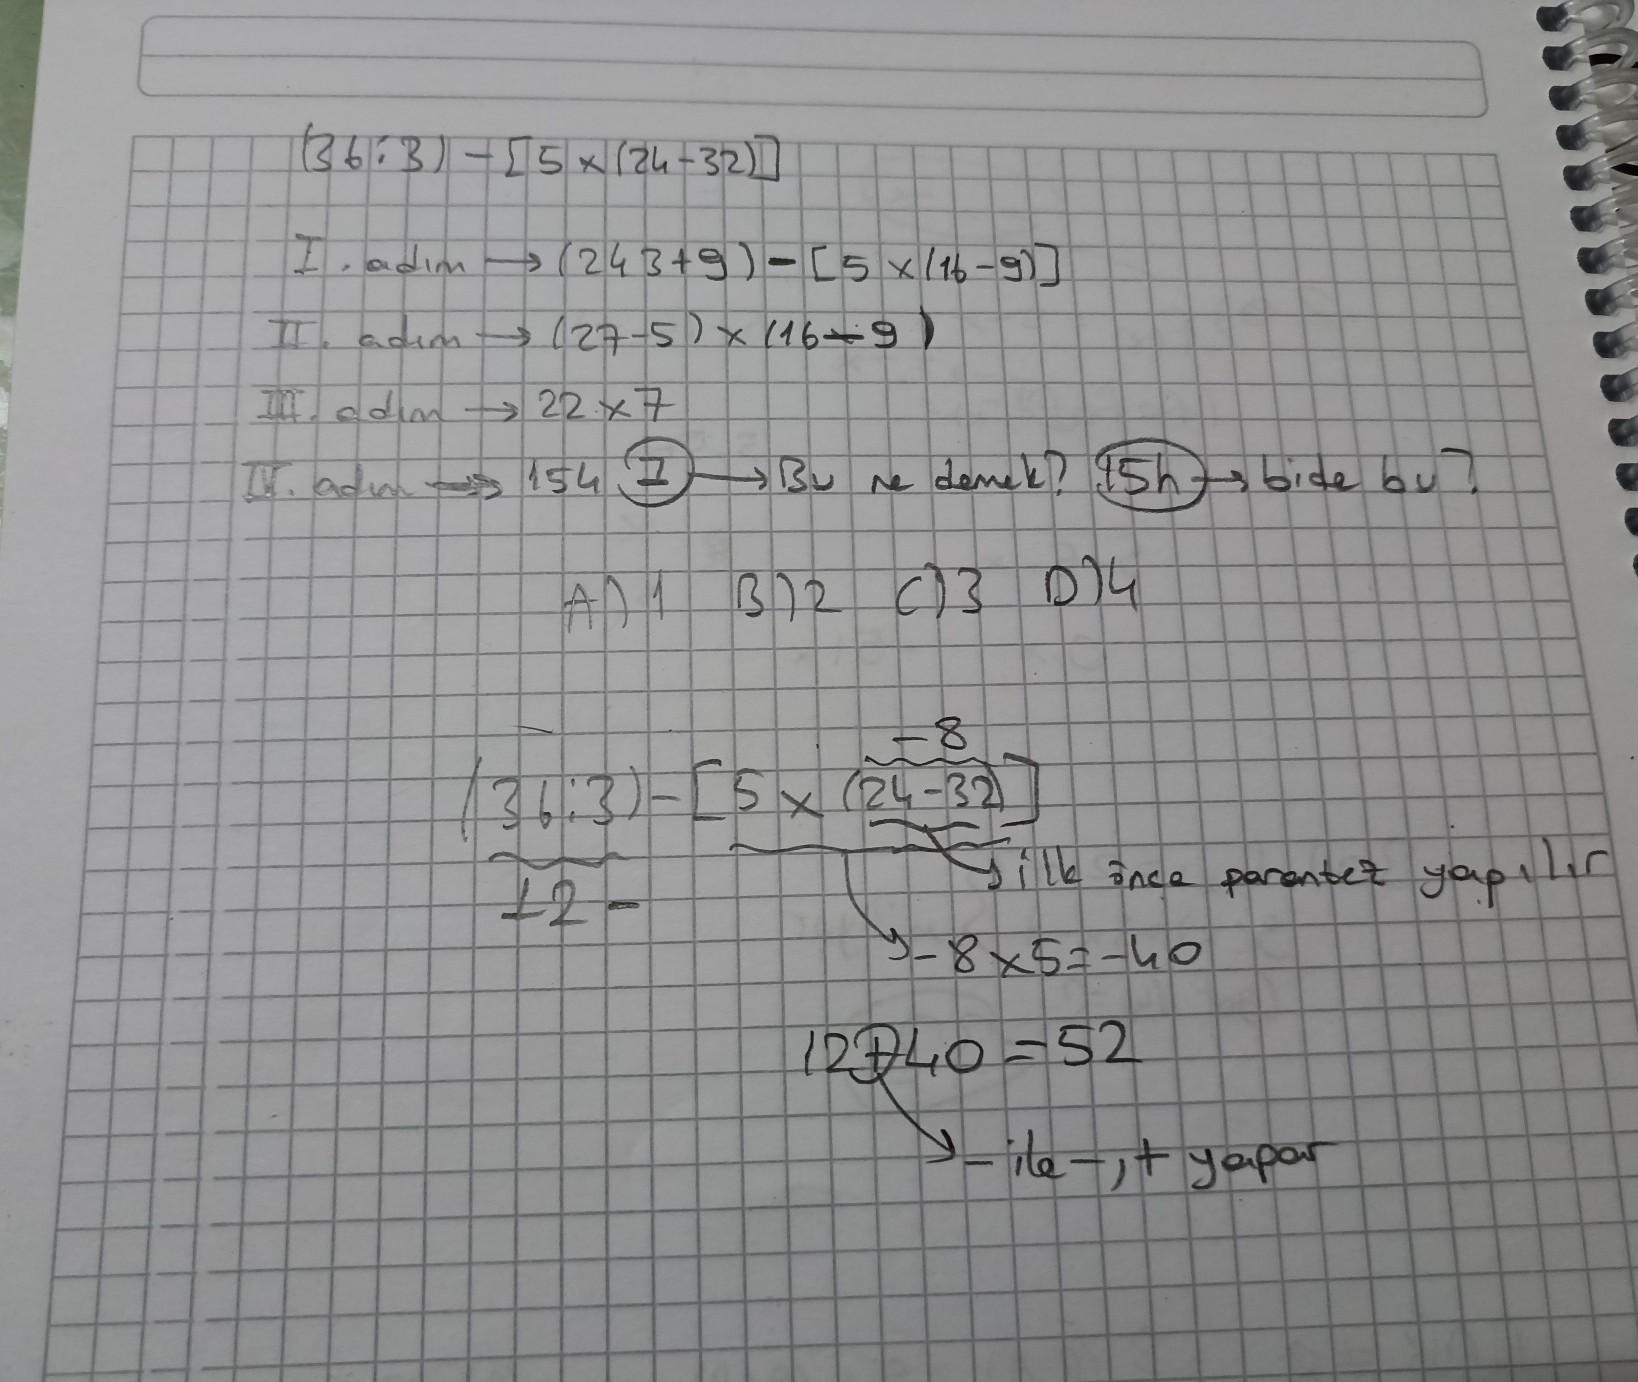 (36:3) - [5 x (24-32)]
I. adım → (243+9) - [5 x (16-9)]
II. adım → (27-5) x (16-9)
III. adım → 22 x 7
IV. adım → 154 I → Bu ne demek? 15h → bide bu?
A) 1 B) 2 C) 3 D) 4
-8
(36:3) - [5 x (24-32)]
ilk önce parantez yapılır
12 -
-8x5=-40
12+40=52
- ile -, + yapar